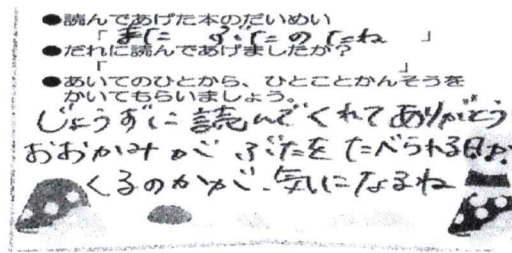 ●読んであげた本のだいめい
「また ぶたのたね 」
●だれに読んであげましたか？
「 」
●あいてのひとから、ひとことかんそうを
かいてもらいましょう。
じょうずに 読んでくれて ありがとう
おおかみが ぶたを たべられる日が
くるのかが、気になるね